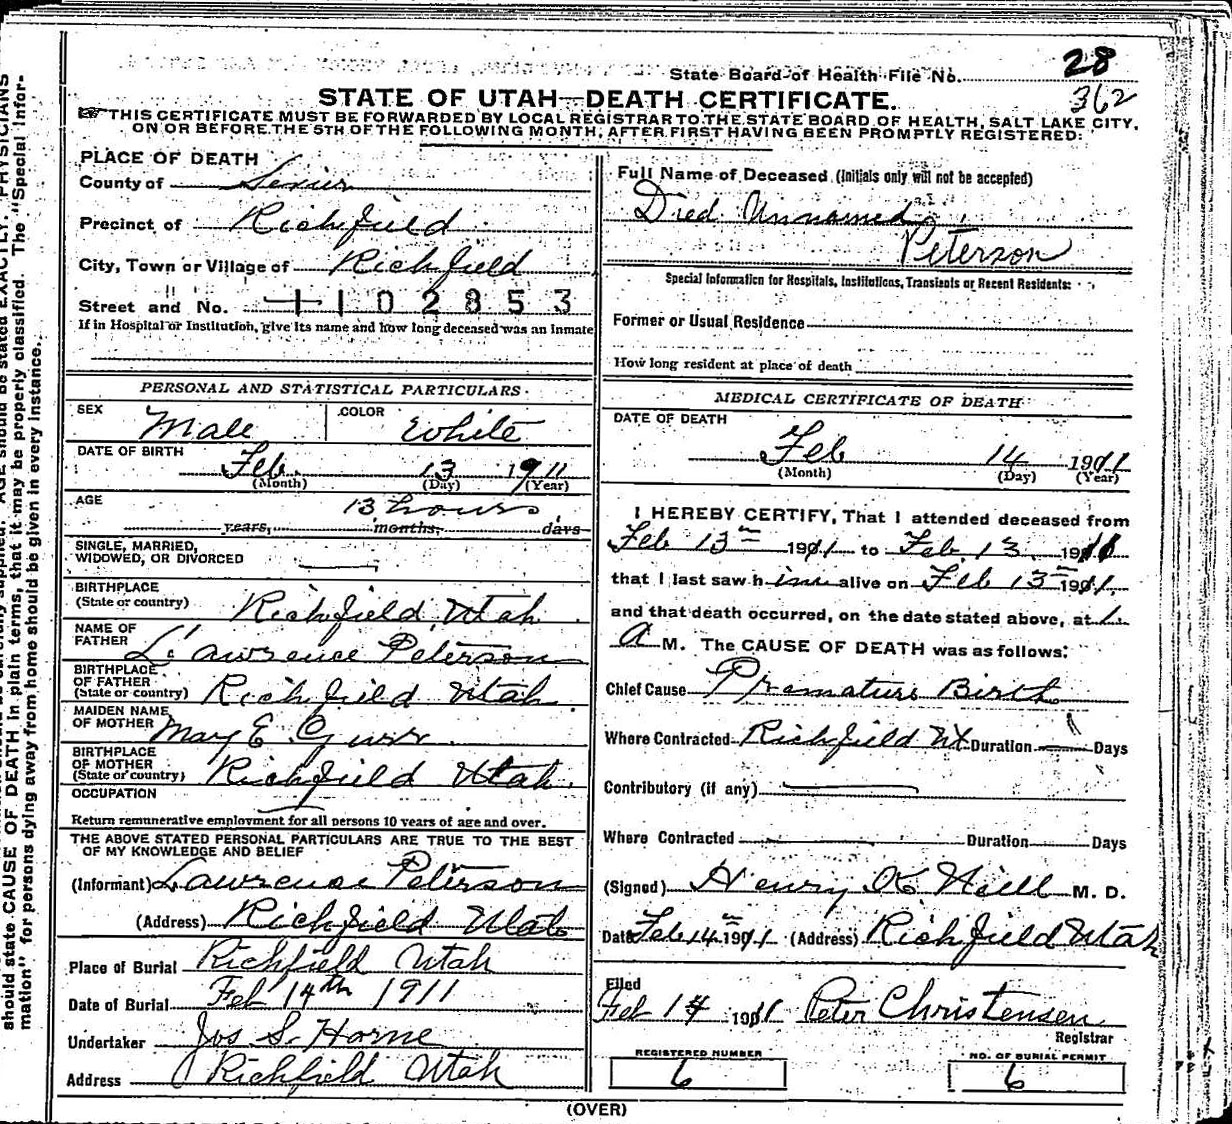 28
State Board of Health File No. 362
STATE OF UTAH—DEATH CERTIFICATE.
THIS CERTIFICATE MUST BE FORWARDED BY LOCAL REGISTRAR TO THE STATE BOARD OF HEALTH, SALT LAKE CITY,
ON OR BEFORE THE 5TH OF THE FOLLOWING MONTH, AFTER FIRST HAVING BEEN PROMPTLY REGISTERED:
PLACE OF DEATH
County of Sevier
Precinct of Richfield
City, Town or Village of Richfield
Street and No. 1102853
If in Hospital or Institution, give its name and how long deceased was an inmate
PERSONAL AND STATISTICAL PARTICULARS
SEX Male COLOR White
DATE OF BIRTH Feb. 13 1911
(Month) (Day) (Year)
AGE 13 hours
years, months, days
SINGLE, MARRIED,
WIDOWED, OR DIVORCED
BIRTHPLACE
(State or country) Richfield, Utah
NAME OF
FATHER Lawrence Peterson
BIRTHPLACE
OF FATHER
(State or country) Richfield Utah.
MAIDEN NAME
OF MOTHER Mary E.
BIRTHPLACE
OF MOTHER
(State or country) Richfield Utah.
OCCUPATION
Return remunerative employment for all persons 10 years of age and over.
THE ABOVE STATED PERSONAL PARTICULARS ARE TRUE TO THE BEST
OF MY KNOWLEDGE AND BELIEF
(Informant) Lawrence Peterson
(Address) Richfield Utah
Place of Burial Richfield Utah
Date of Burial Feb 14th 1911
Undertaker Jos S. Horne
Address Richfield Utah
Full Name of Deceased (Initials only will not be accepted)
Died Unnamed
Peterson
Special Information for Hospitals, Institutions, Transients or Recent Residents:
Former or Usual Residence
How long resident at place of death
MEDICAL CERTIFICATE OF DEATH
DATE OF DEATH
Feb 14 1911
(Month) (Day) (Year)
I HEREBY CERTIFY, That I attended deceased from
Feb 13th 1911 to Feb. 13 1911
that I last saw him alive on Feb 13th 1911,
and that death occurred, on the date stated above, at 1.
A M. The CAUSE OF DEATH was as follows:
Chief Cause Premature Birth
Where Contracted Richfield Ut Duration Days
Contributory (if any)
Where Contracted Duration Days
(Signed) Henry K Neill M. D.
Date Feb 14th 1911 (Address) Richfield Utah
Filed
Feb 14 1911 Peter Christensen
Registrar
REGISTERED NUMBER
6
NO. OF BURIAL PERMIT
6
(OVER)
should state CAUSE OF DEATH in plain terms, that it may be properly classified. The "Special Infor-
mation" for persons dying away from home should be given in every instance.